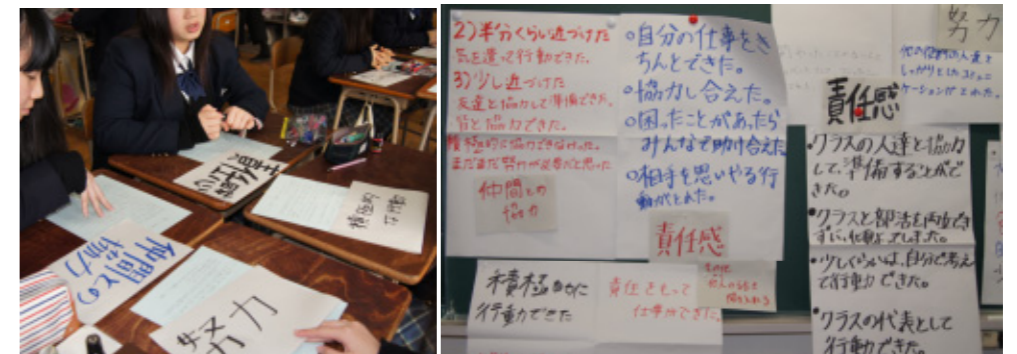 積極的
な行動
仲間との
協力
努力
2)半分くらい近づけた
気を遣って行動できた。
3)少し近づけた
友達と協力して準備できた。
皆と協力できた。
積極的に協力できなかった。
まだまだ努力が必要だと思った
仲間との
協力
○自分の仕事をき
ちんとできた。
○協力し合えた。
○困ったことがあったら
みんなで助け合えた
○相手を思いやる行
動がとれた。
責任感
積極的に
行動できた
責任をもって
仕事ができた。
努力
他の役割の人達と
しっかりとしたコミュニ
ケーションがとれた。
責任感
・クラスの人達と協力
して、準備することがで
きた。
・クラスと部活を両立でき
ずに、
・少しくらいは、自分で考え
て行動できた。
・クラスの代表として
行動できた。